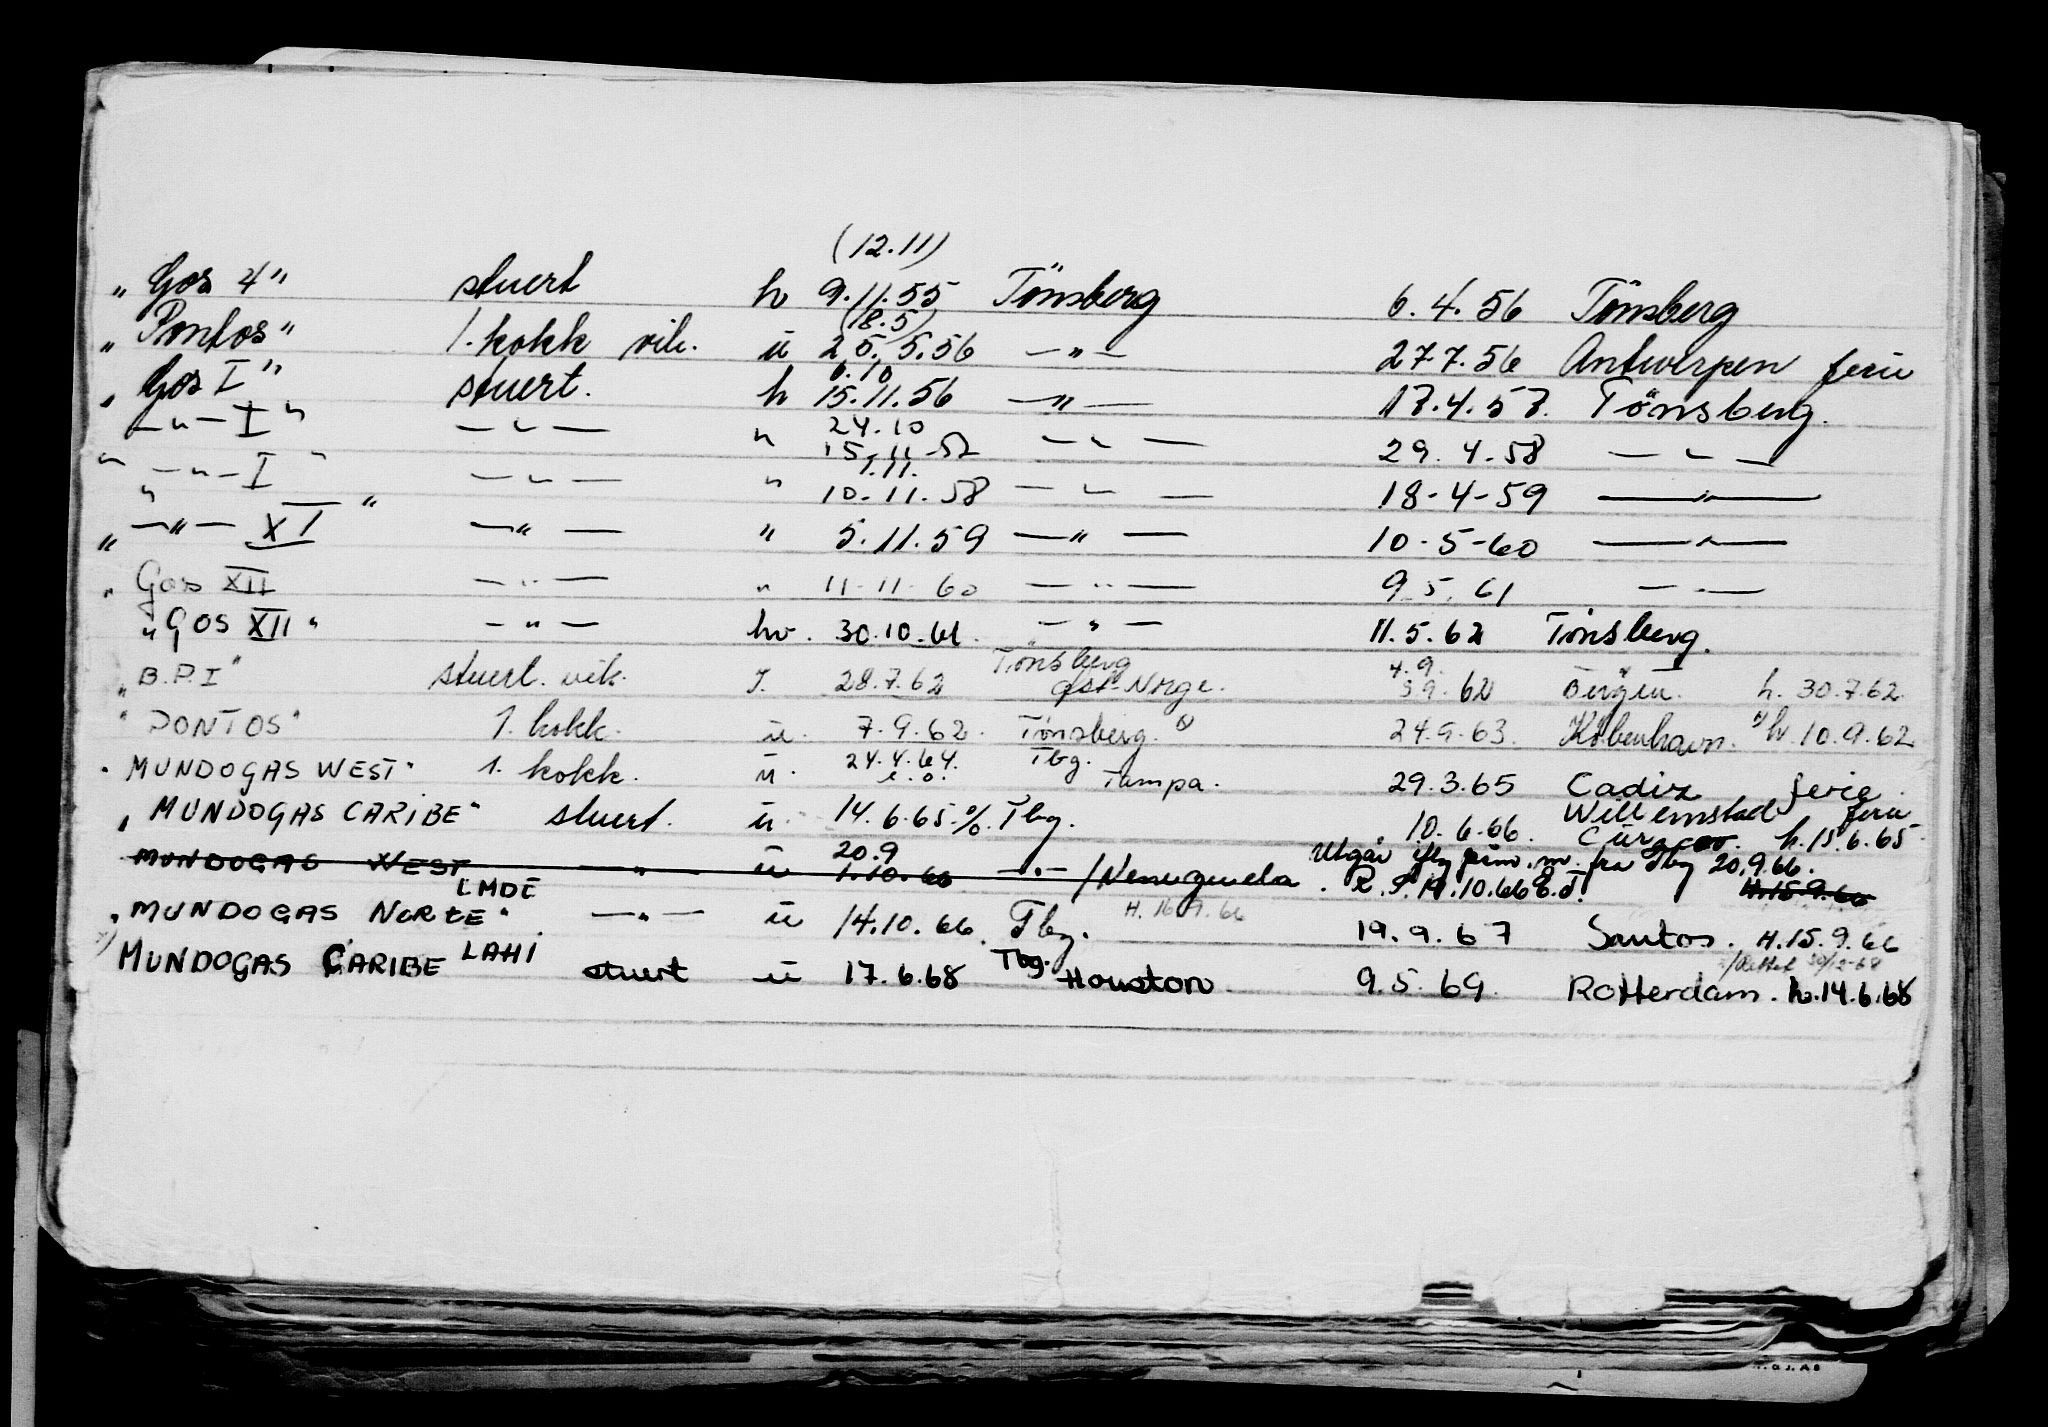 (12.11)
„ Gos 4" stuert h 9.11.55 Tönsberg 6.4.56 Tönsberg
(18.5)
„ Pontos" 1. kokk vik. u 25.5.56 —"— 27.7.56 Antwerpen ferie
6.10
„ Gos I" stuert. h 15.11.56 —"— 17.4.57. Tönsberg.
24.10
—"— I " —"— " 15-11-57 —"— 29.4.58 —"—
1.11.
" —"— I " —"— " 10.11.58 —"— 18-4-59 —"—
„ —"— XI " —"— " 5.11.59 —"— 10-5-60 —"—
„ Gos XII —"— " 11-11-60 —"— 9.5.61 —"—
„ GOS XII " —"— hv. 30.10.61. —"— 11.5.62 Tönsberg.
Tönsberg 4.9.
„ B.P.I" stuert. vik. I. 28.7.62 öst-Norge. 62 Bergen. h. 30.7.62.
" PONTOS" 1. kokk. u. 7.9.62. Tönsberg. x) 24.9.63. København. x) h. 10.9.62
24.4.64. Tbg.
" MUNDOGAS WEST" 1. kokk. u. Tampa. 29.3.65 Cadiz ferie.
Willemstad ferie
„ MUNDOGAS CARIBE" stuert. u. 14.6.65 % Tbg. 10.6.66. Curacao. h. 15.6.65
20.9 Utgår fra Tbg 20.9.66.
MUNDOGAS WEST —"— u 1.10.66 —"— /Venezuela. 10.66 H.15.9.66
LMDE H. 16.9.66
„ MUNDOGAS NORTE" —"— u 14.10.66. Tbg. 19.9.67 Santos. H.15.9.66
x) LAHI Tbg. x)
MUNDOGAS CARIBE stuert u 17.6.68 Houston. 9.5.69. Rotterdam. h.14.6.68